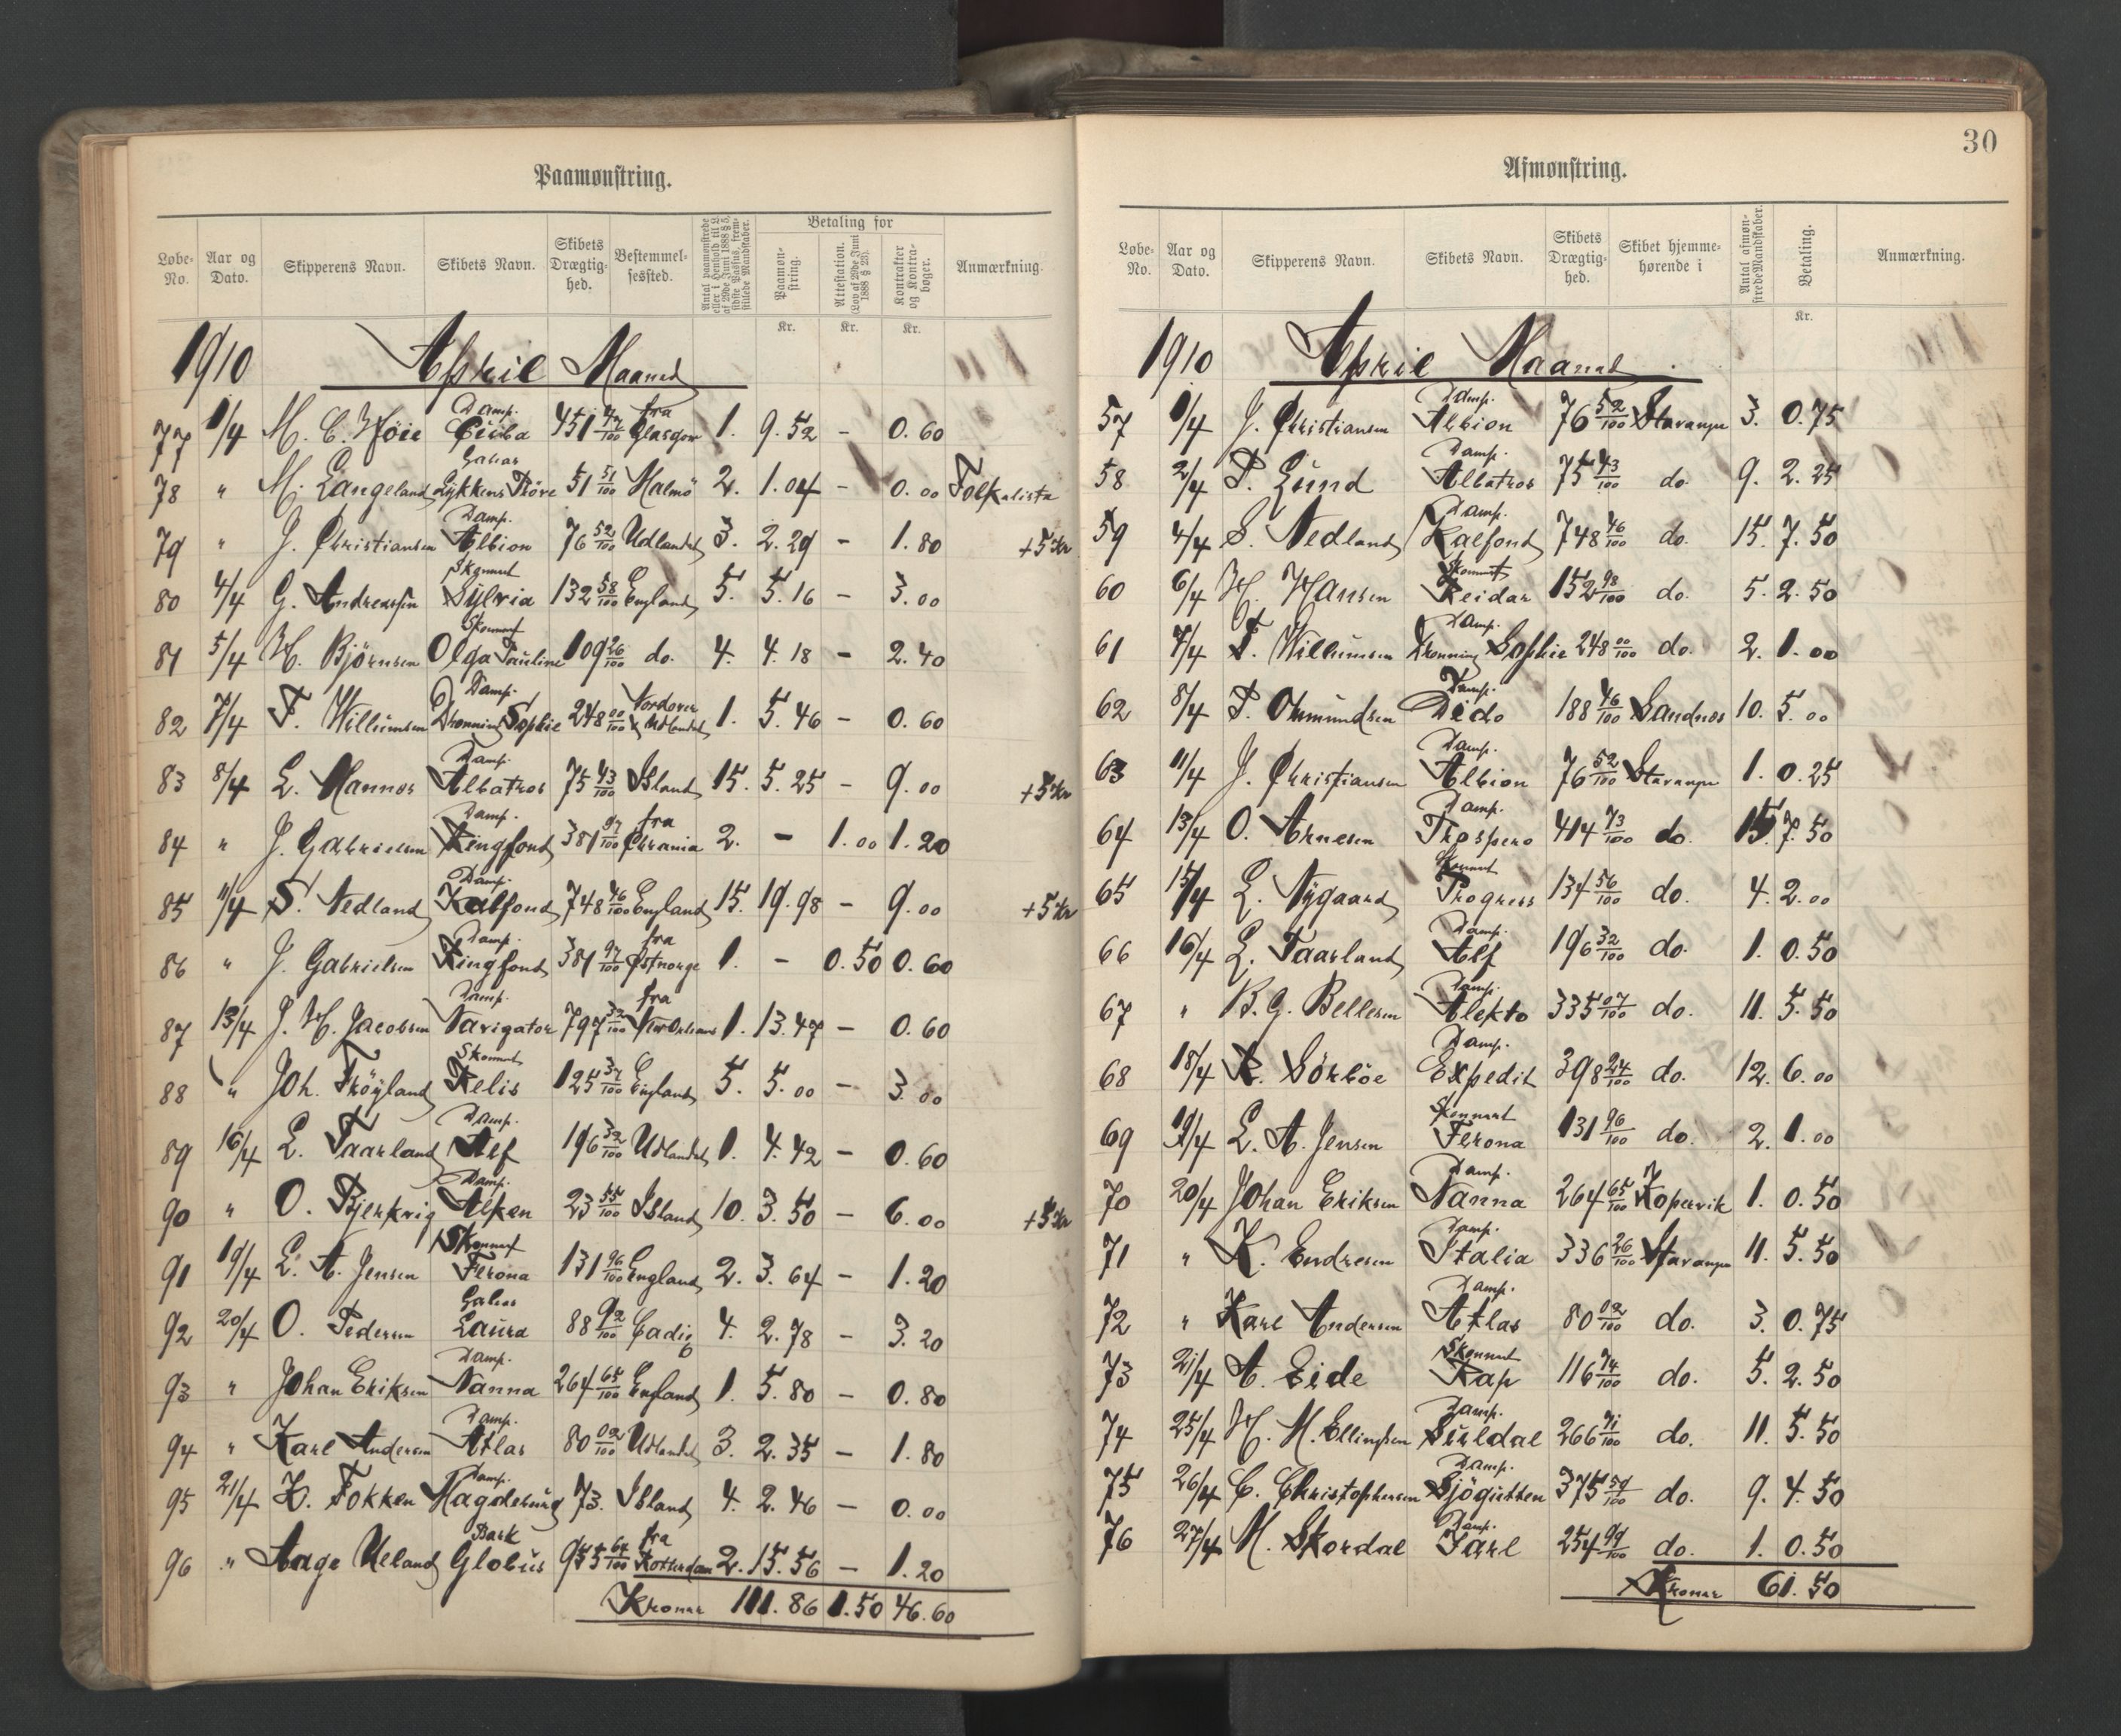 Paamønstring.
Løbe-No. Aar og Dato. Skipperens Navn. Skibets Navn. Skibets Drægtig-hed. Bestemmel-sessted. Antal paamønstrede eller i Henhold til L. af 29de Juni 1888 § 5, sidste Passus, frem-stillede Mandskaber. Betaling for Paamøn-string. Attestation. (Lov af 29de Juni 1888 § 23). Kontrakter og Kontra-bøger. Anmærkning.
Kr. Kr. Kr.
1910 April Maaned
77 1/4 M. C. Høie Damp. Cecilia 451 47/100 fra Glasgow 1. 9.52 – 0.60
78 " M. Langeland Galeas Lykkens Prøve 51 51/100 Malmö 2. 1.04 – 0.00
79 " J. Christiansen Damp. Albion 76 52/100 Udlandet 3. 2.29 – 1.80 +5 Kr
80 4/4 G. Andreassen Skonnert Sylvia 132 58/100 England 5. 5.16 – 3.00
81 5/4 H. Bjørnsen Skonnert Olga Pauline 109 26/100 do. 4. 4.18 – 2.40
82 7/4 F. Willumsen Damp. Dronning Sophie 248 00/100 Nordover & Udlandet 1. 5.46 – 0.60
83 8/4 L. Mannes Damp. Albatros 75 43/100 Island 15. 5.25 – 9.00 +5 Kr
84 " J. Gabrielsen Damp. Kingfond 381 97/100 fra Chrania 2. – 1.00 1.20
85 11/4 S. Nedland Damp. Kalfond 748 46/100 England 15. 19.98 – 9.00 +5 Kr
86 " J. Gabrielsen Damp. Kingfond 381 97/100 fra Østnorge 1. – 0.50 0.60
87 13/4 J. H. Jacobsen Damp. Navigator 797 32/100 fra New Orleans 1. 13.47 – 0.60
88 " Joh. Frøyland Skonnert Kelis 125 37/100 England 5. 5.00 – 3.00
89 16/4 L. Taarland Damp. Alf 196 32/100 Udlandet 1. 4.42 – 0.60
90 " O. Bjerkvig Damp. Alken 23 55/100 Island 10. 3.50 – 6.00 +5 Kr
91 19/4 L. A. Jensen Skonnert Ferona 131 96/100 England 2. 3.64 – 1.20
92 20/4 O. Pedersen Galeas Laura 88 92/100 Cadiz 4. 2.78 – 3.20
93 " Johan Eriksen Damp. Nanna 264 65/100 England 1. 5.80 – 0.80
94 " Karl Andersen Damp. Atlas 80 02/100 Udlandet 3. 2.35 – 1.80
95 21/4 H. Fokken Damp. Magdeburg 73. Island 4. 2.46 – 0.00
96 " Aage Ueland Bark Globus 955 64/100 fra Rotterdam 2. 15.56 – 1.20
Kroner 111.86 1.50 46.60
30
Afmønstring.
Løbe-No. Aar og Dato. Skipperens Navn. Skibets Navn. Skibets Drægtig-hed. Skibet hjemme-hørende i Antal afmøn-strede Mandskaber. Betaling. Anmærkning.
Kr.
1910 April Maaned.
57 1/4 J. Christiansen Damp. Albion 76 52/100 Stavanger 3. 0.75
58 2/4 P. Lund Damp. Albatros 75 43/100 do. 9. 2.25
59 4/4 S. Nedland Damp. Kalfond 748 46/100 do. 15. 7.50
60 6/4 H. Hansen Skonnert Reidar 152 98/100 do. 5. 2.50
61 7/4 F. Willumsen Damp. Dronning Sophie 248 00/100 do. 2. 1.00
62 8/4 P. Osmundsen Damp. Dido 188 46/100 Sandnes 10. 5.00
63 11/4 J. Christiansen Damp. Albion 76 52/100 Stavanger 1. 0.25
64 13/4 O. Arnesen Damp. Prospero 414 73/100 do. 15. 7.50
65 15/4 L. Nygaard Skonnert Progress 134 56/100 do. 4. 2.00
66 16/4 L. Taarland Damp. Alf 196 32/100 do. 1. 0.50
67 " B. G. Bellesen Damp. Alekto 335 07/100 do. 11. 5.50
68 18/4 R. Sørbøe Damp. Expedit 398 24/100 do. 12. 6.00
69 19/4 L. A. Jensen Skonnert Ferona 131 96/100 do. 2. 1.00
70 20/4 Johan Eriksen Damp. Nanna 264 65/100 Kopervik 1. 0.50
71 " K. Endresen Damp. Italia 336 26/100 Stavanger 11. 5.50
72 " Karl Andersen Damp. Atlas 80 02/100 do. 3. 0.75
73 21/4 A. Eide Skonnert Rap 116 74/100 do. 5. 2.50
74 25/4 H. M. Ellingsen Damp. Suldal 266 71/100 do. 11. 5.50
75 26/4 C. Christophersen Damp. Sjøgutten 375 59/100 do. 9. 4.50
76 27/4 M. Skordal Damp. Jarl 254 99/100 do. 1. 0.50
Kroner 61.50